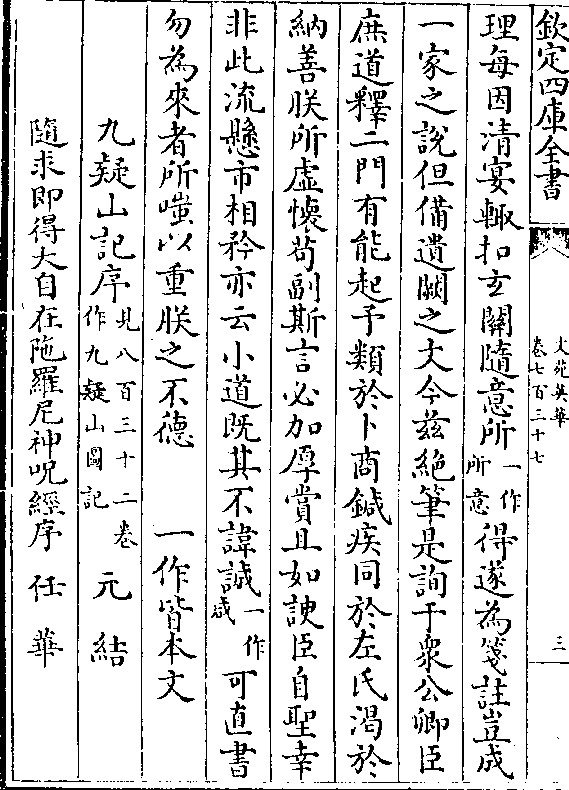 欽定四庫全書
文苑英華
卷七百三十七
三
理每因清宴輙扣玄關隨意所一作所意得遂為箋註豈成
一家之說但備遺闕之文今兹絶筆是詢于衆公卿臣
庶道釋二門有能起予類於卜商鍼疾同於左氏渴於
納善朕所虚懷茍副斯言必加厚賞且如諛臣自聖幸
非此流懸市相矜亦云小道既其不諱誠一作咸可直書
勿為來者所嗤以重朕之不德 一作皆本文
九疑山記序見八百三十二卷作九疑山圖記 元結
隨求即得大自在陁羅尼神呪經序 任華